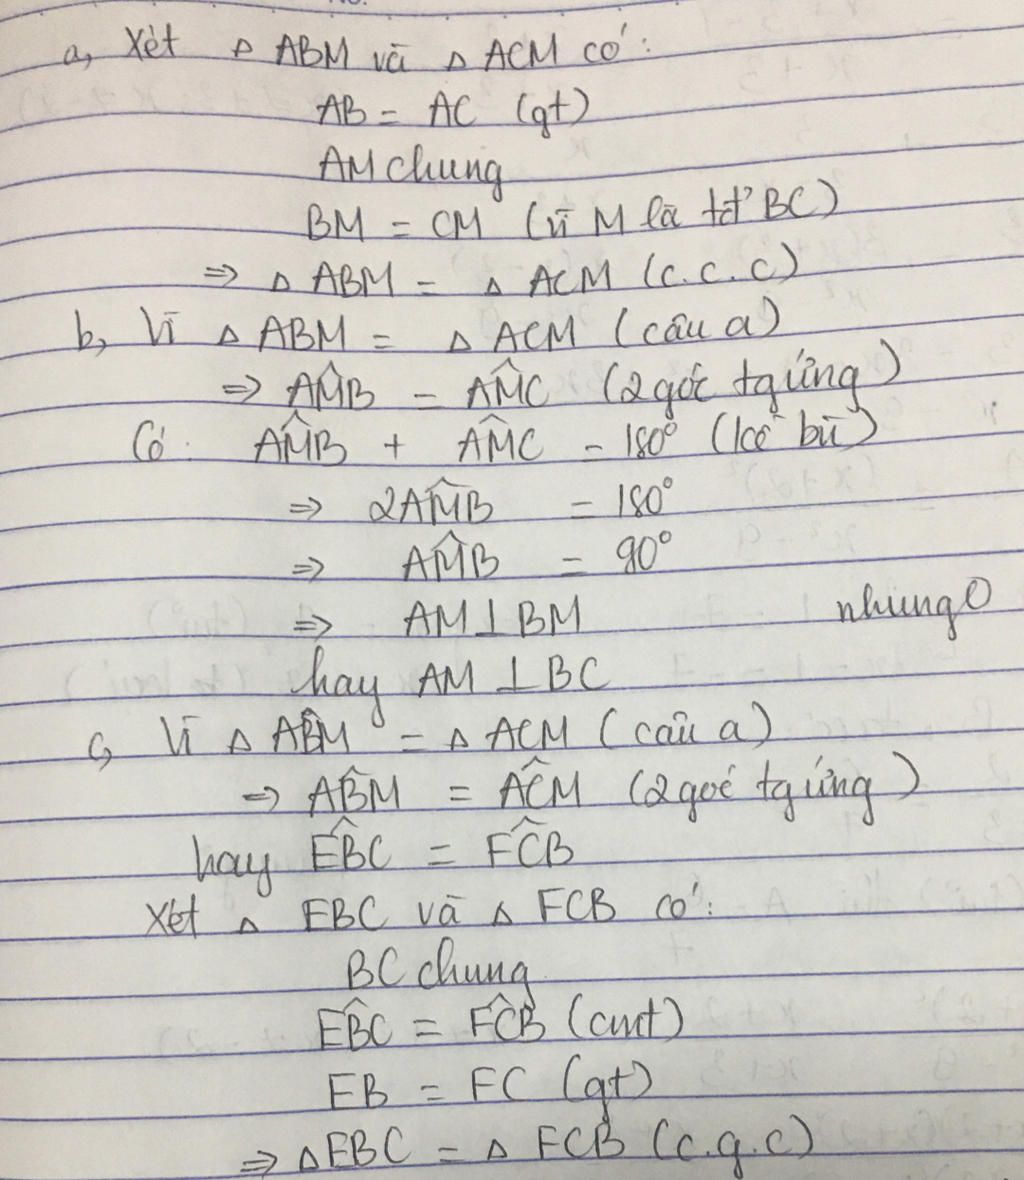 a, Xét Δ ABM và Δ ACM có:
AB = AC (gt)
AM chung
BM = CM (vì M là tđ' BC)
⇒ Δ ABM = Δ ACM (c.c.c)
b, Vì Δ ABM = Δ ACM (câu a)
⇒ AM̂B = AM̂C (2 góc tg ứng)
Có: AM̂B + AM̂C = 180° (kề bù)
⇒ 2AM̂B = 180°
⇒ AM̂B = 90°
⇒ AM ⊥ BM nhungO
hay AM ⊥ BC
c, Vì Δ AB̂M = Δ ACM (câu a)
⇒ AB̂M = AĈM (2 góc tg ứng)
hay EB̂C = FĈB
Xét Δ EBC và Δ FCB có:
BC chung
EB̂C = FĈB (cmt)
EB = FC (gt)
⇒ Δ EBC = Δ FCB (c.g.c)